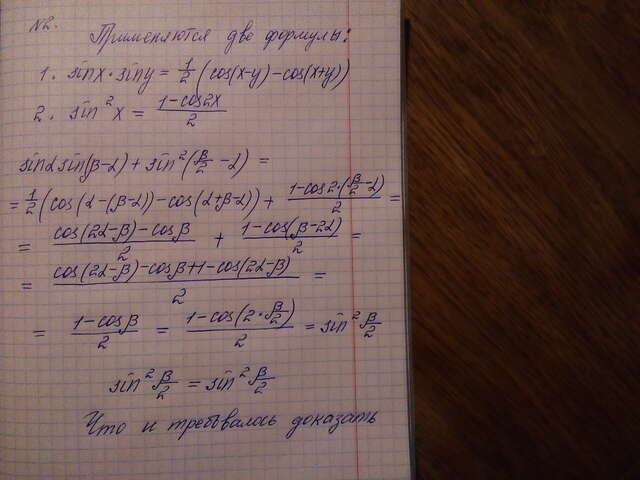 №2.
Применяются две формулы:
1. sinx·siny = 1/2 (cos(x-y) - cos(x+y))
2. sin²x = (1-cos2x)/2
sinα sin(β-α) + sin²(β/2 - α) =
= 1/2 (cos(α-(β-α)) - cos(α+β-α)) + (1-cos2·(β/2-α))/2 =
= (cos(2α-β) - cosβ)/2 + (1-cos(β-2α))/2 =
= (cos(2α-β) - cosβ + 1 - cos(2α-β))/2 =
= (1-cosβ)/2 = (1-cos(2·β/2))/2 = sin² β/2
sin² β/2 = sin² β/2
Что и требовалось доказать